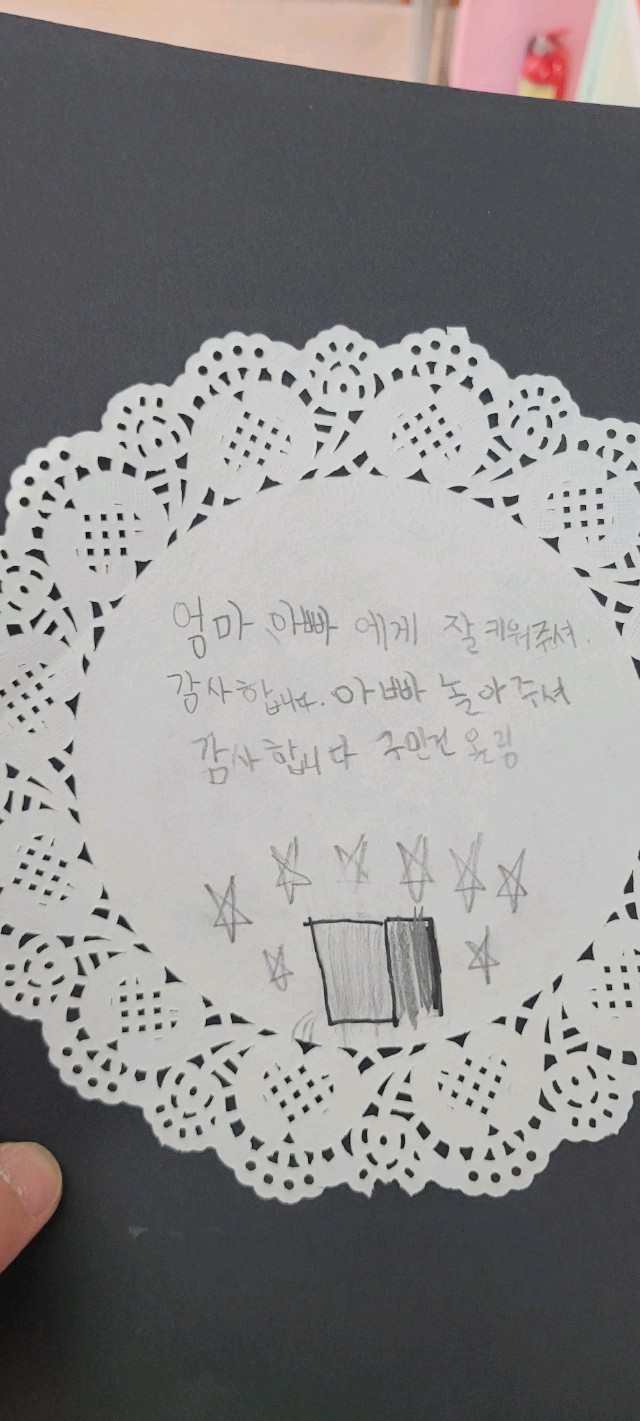 엄마 아빠 에게 잘 키워주셔.
감사합니다. 아빠 놀아주셔
감사합니다 구민건 올림